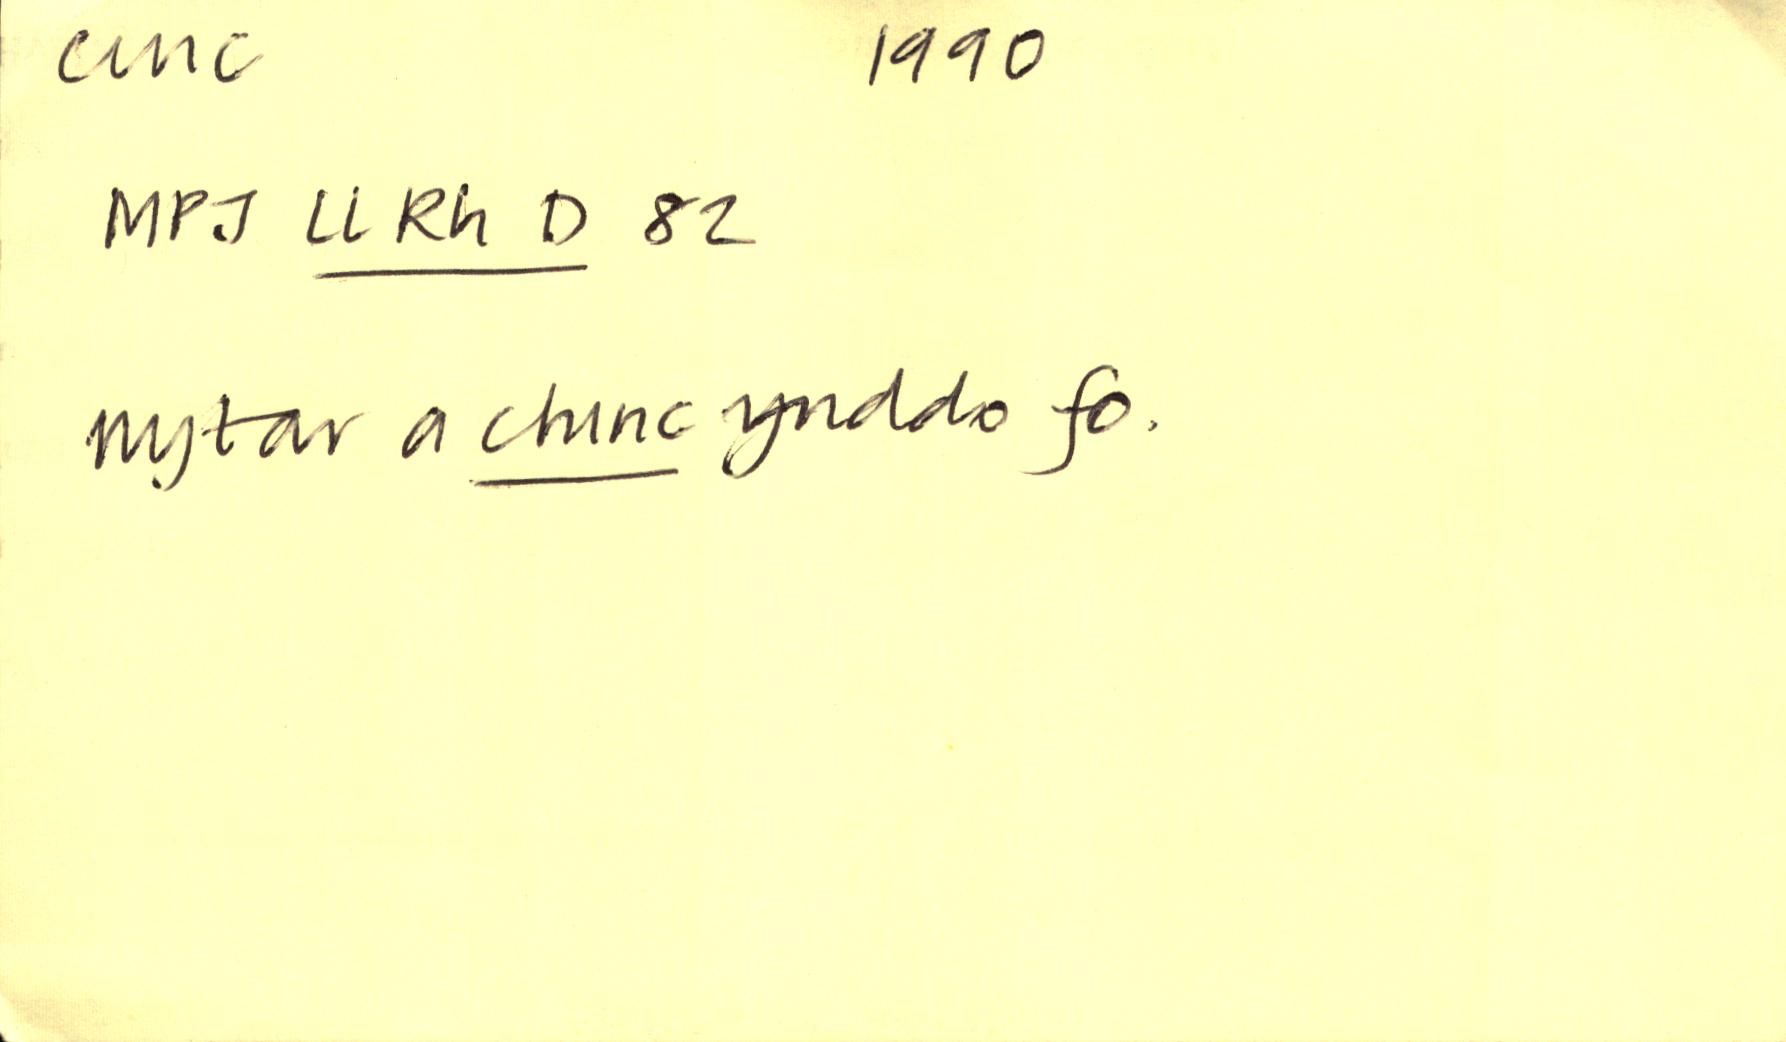 cinc 1990
MPJ Ll Rh D 82
nytar a chinc ynddo fo.